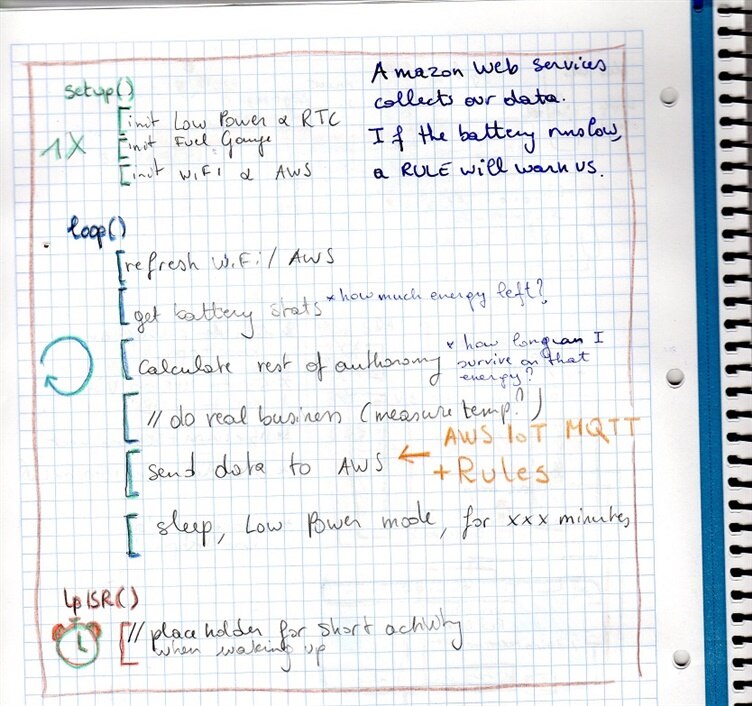 setup()
1X
init Low Power & RTC
init Fuel Gauge
init WiFi & AWS
Amazon Web Services
collects our data.
If the battery runs low,
a RULE will warn us.
loop()
refresh WiFi / AWS
get battery stats
* how much energy left?
Calculate rest of authonomy
* how long can I
survive on that
energy?
// do real business (measure temp?)
send data to AWS
← AWS IoT MQTT
+ Rules
sleep, Low Power mode, for xxx minutes
lpISR()
// placeholder for short activity
when waking up